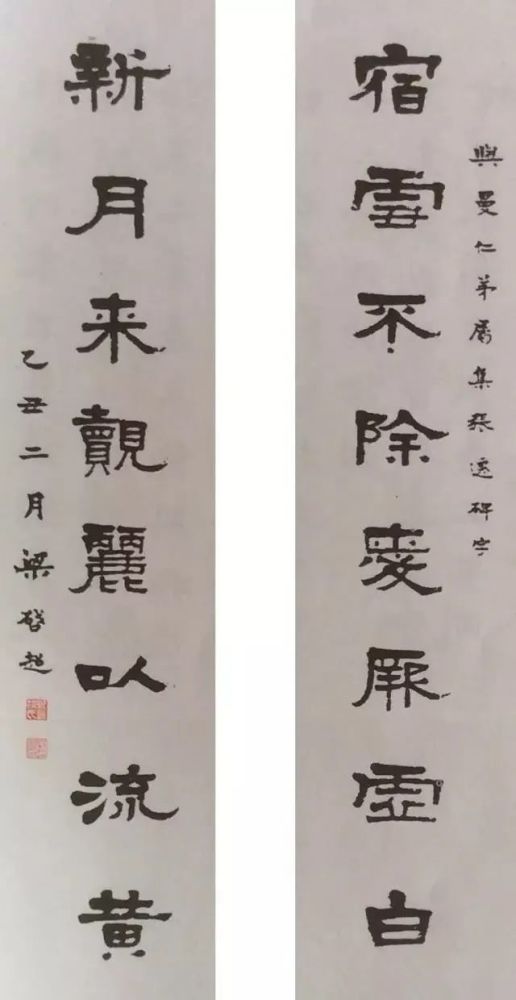 與曼仁弟属集張遷碑字
宿雲不除愛厥虛白
新月来覿麗以流黄
乙丑二月梁啓超